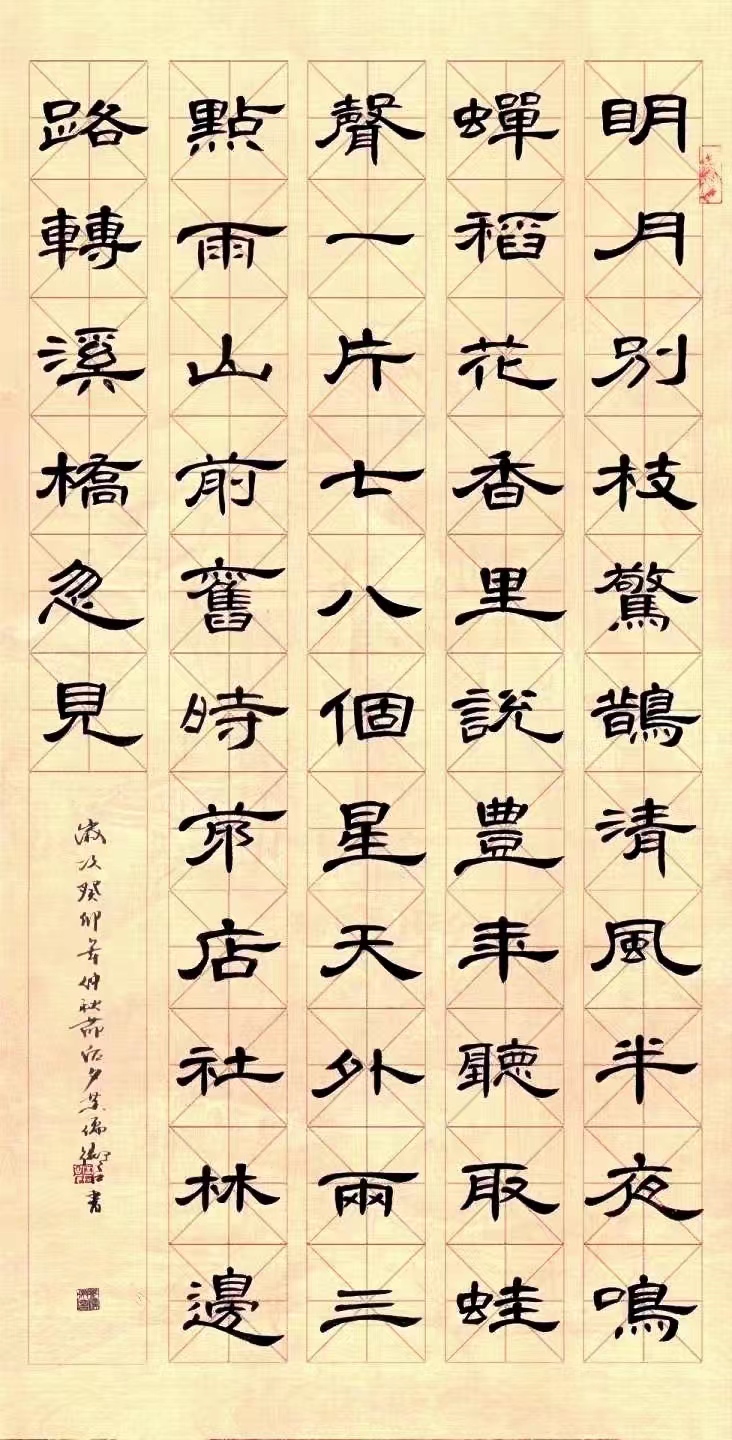 眀月別枝驚鵲清風半夜鳴
蟬稻花香里說豊年聽取蛙
聲一片七八個星天外兩三
點雨山前舊時茅店社林邊
路轉溪橋忽見
歲次癸卯年仲秋節 書